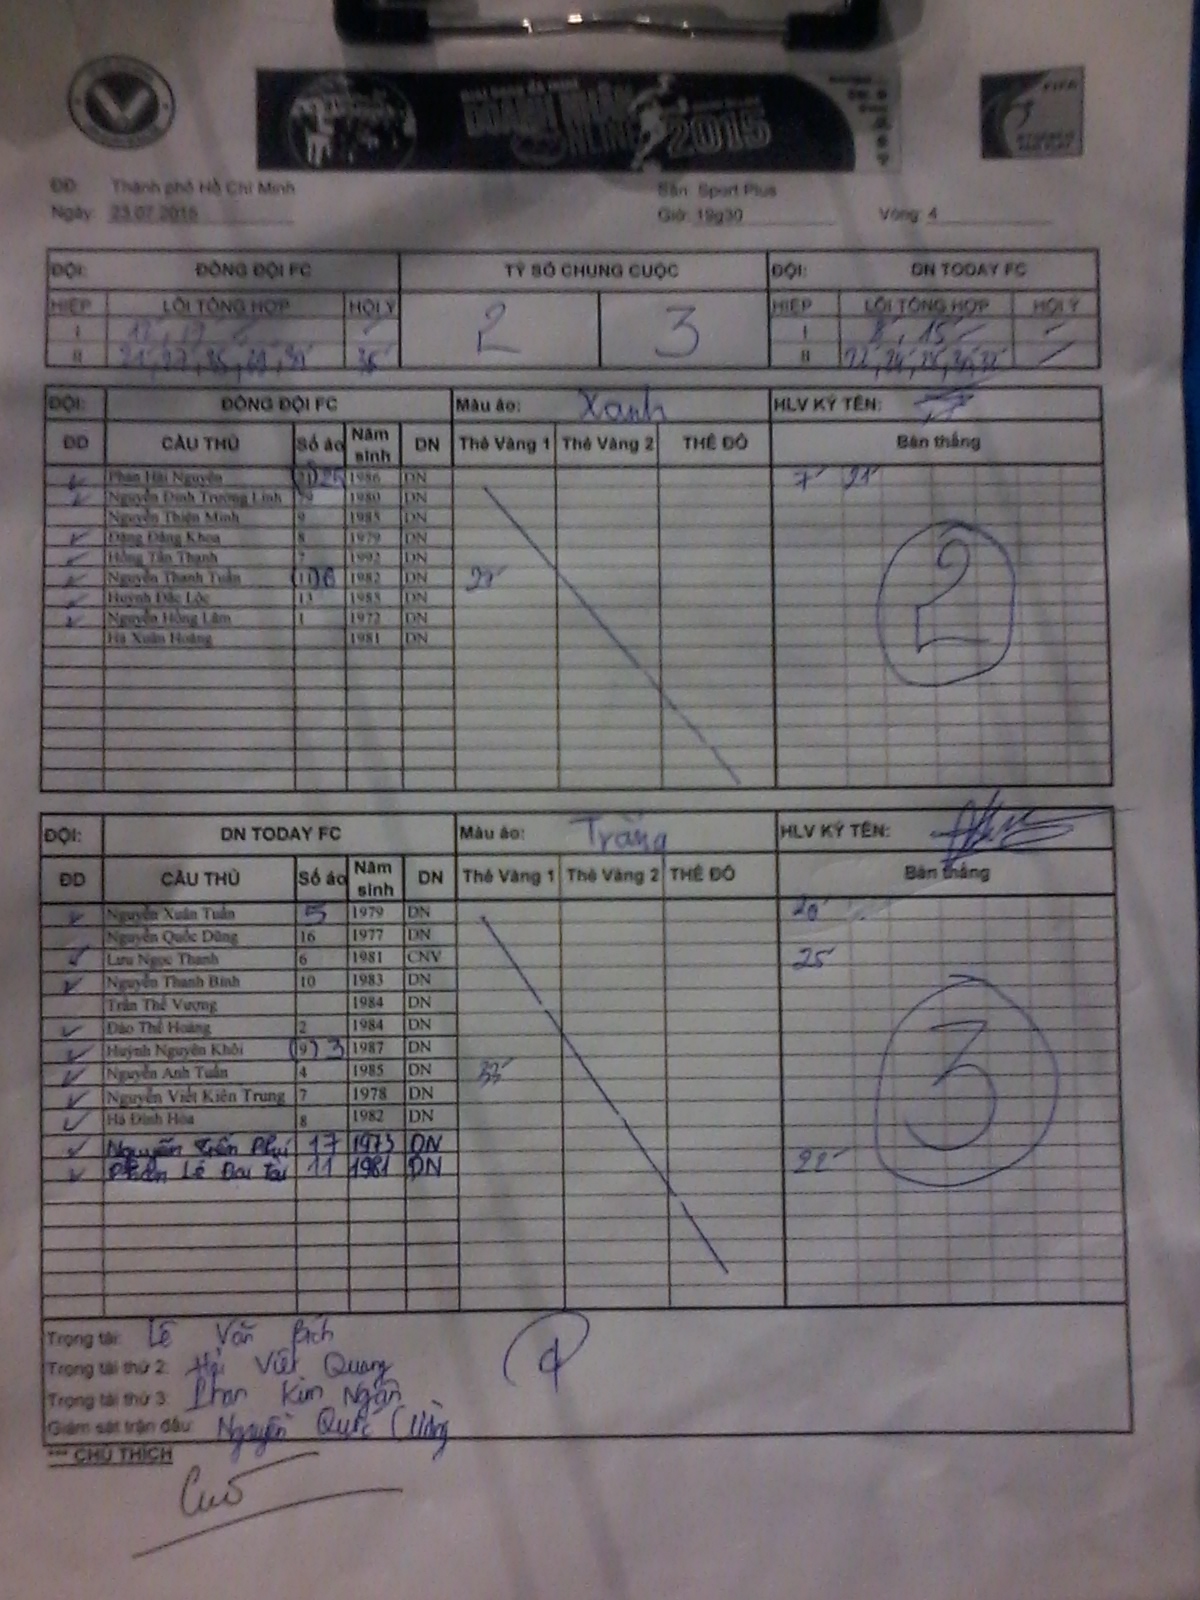 DOANH NHÂN
ONLINE
2015
FIFA
ĐĐ: Thành phố Hồ Chí Minh Sân: Sport Plus
Ngày: 23.07.2015 Giờ: 19g30 Vòng: 4
ĐỘI: ĐỒNG ĐỘI FC TỶ SỐ CHUNG CUỘC ĐỘI: DN TODAY FC
HIỆP LỖI TỔNG HỢP HỘI Ý 2 3 HIỆP LỖI TỔNG HỢP HỘI Ý
I I 8' 15'
II 36' II
ĐỘI: ĐỒNG ĐỘI FC Màu áo: Xanh HLV KÝ TÊN:
ĐD CẦU THỦ Số áo Năm sinh DN Thẻ Vàng 1 Thẻ Vàng 2 THẺ ĐỎ Bàn thắng
Phan Hải Nguyên 1986 DN 7' 21'
Nguyễn Đình Trường Linh 79 1980 DN
Nguyễn Thiện Minh 9 1985 DN
Đặng Đăng Khoa 8 1979 DN
Hồng Tấn Thạnh 7 1992 DN
Nguyễn Thanh Tuấn (11) 6 1982 DN
Huỳnh Đắc Lộc 13 1985 DN
Nguyễn Hồng Lâm 1 1972 DN
Hà Xuân Hoàng 1981 DN
2
ĐỘI: DN TODAY FC Màu áo: Trắng HLV KÝ TÊN:
ĐD CẦU THỦ Số áo Năm sinh DN Thẻ Vàng 1 Thẻ Vàng 2 THẺ ĐỎ Bàn thắng
Nguyễn Xuân Tuấn 5 1979 DN 20'
Nguyễn Quốc Dũng 16 1977 DN
Lưu Ngọc Thanh 6 1981 CNV 25'
Nguyễn Thanh Bình 10 1983 DN
Trần Thế Vượng 1984 DN
Đào Thế Hoàng 2 1984 DN
Huỳnh Nguyên Khôi (9) 3 1987 DN
Nguyễn Anh Tuấn 4 1985 DN 33'
Nguyễn Viết Kiên Trung 7 1978 DN
Hà Đình Hòa 8 1982 DN
Nguyễn 17 1973 DN
Phan Lê Đại Tài 11 1981 DN 22'
3
Trọng tài: Lê Văn Bích
Trọng tài thứ 2: Viết Quang
Trọng tài thứ 3: Phan Kim Ngân
Giám sát trận đấu: Nguyễn Quốc
*** CHÚ THÍCH